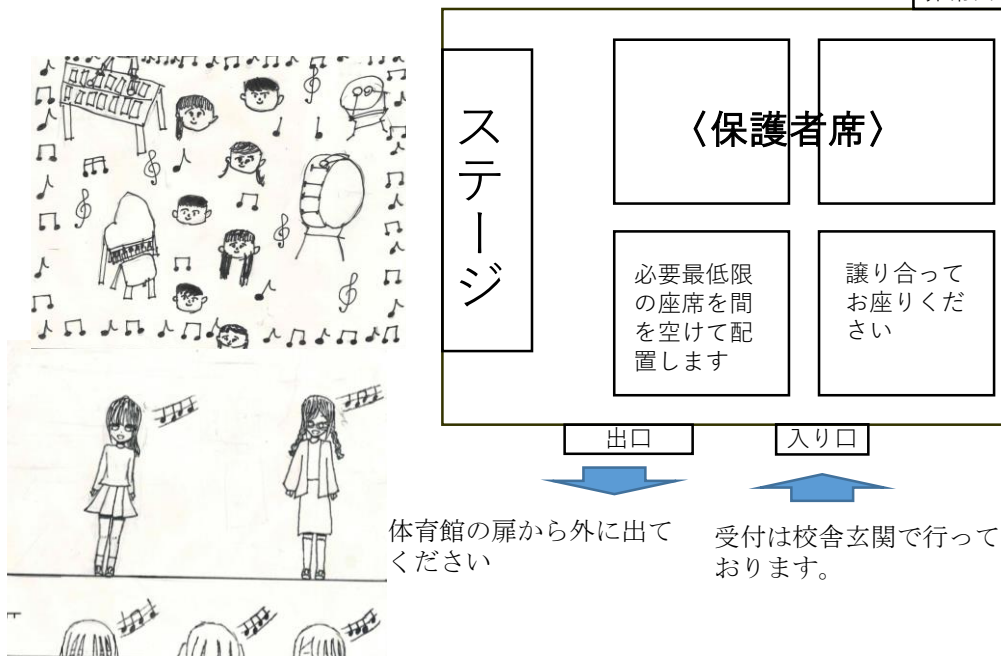 ステージ
〈保護者席〉
必要最低限
の座席を間
を空けて配
置します
譲り合って
お座りくだ
さい
出口
入り口
体育館の扉から外に出て
ください
受付は校舎玄関で行って
おります。